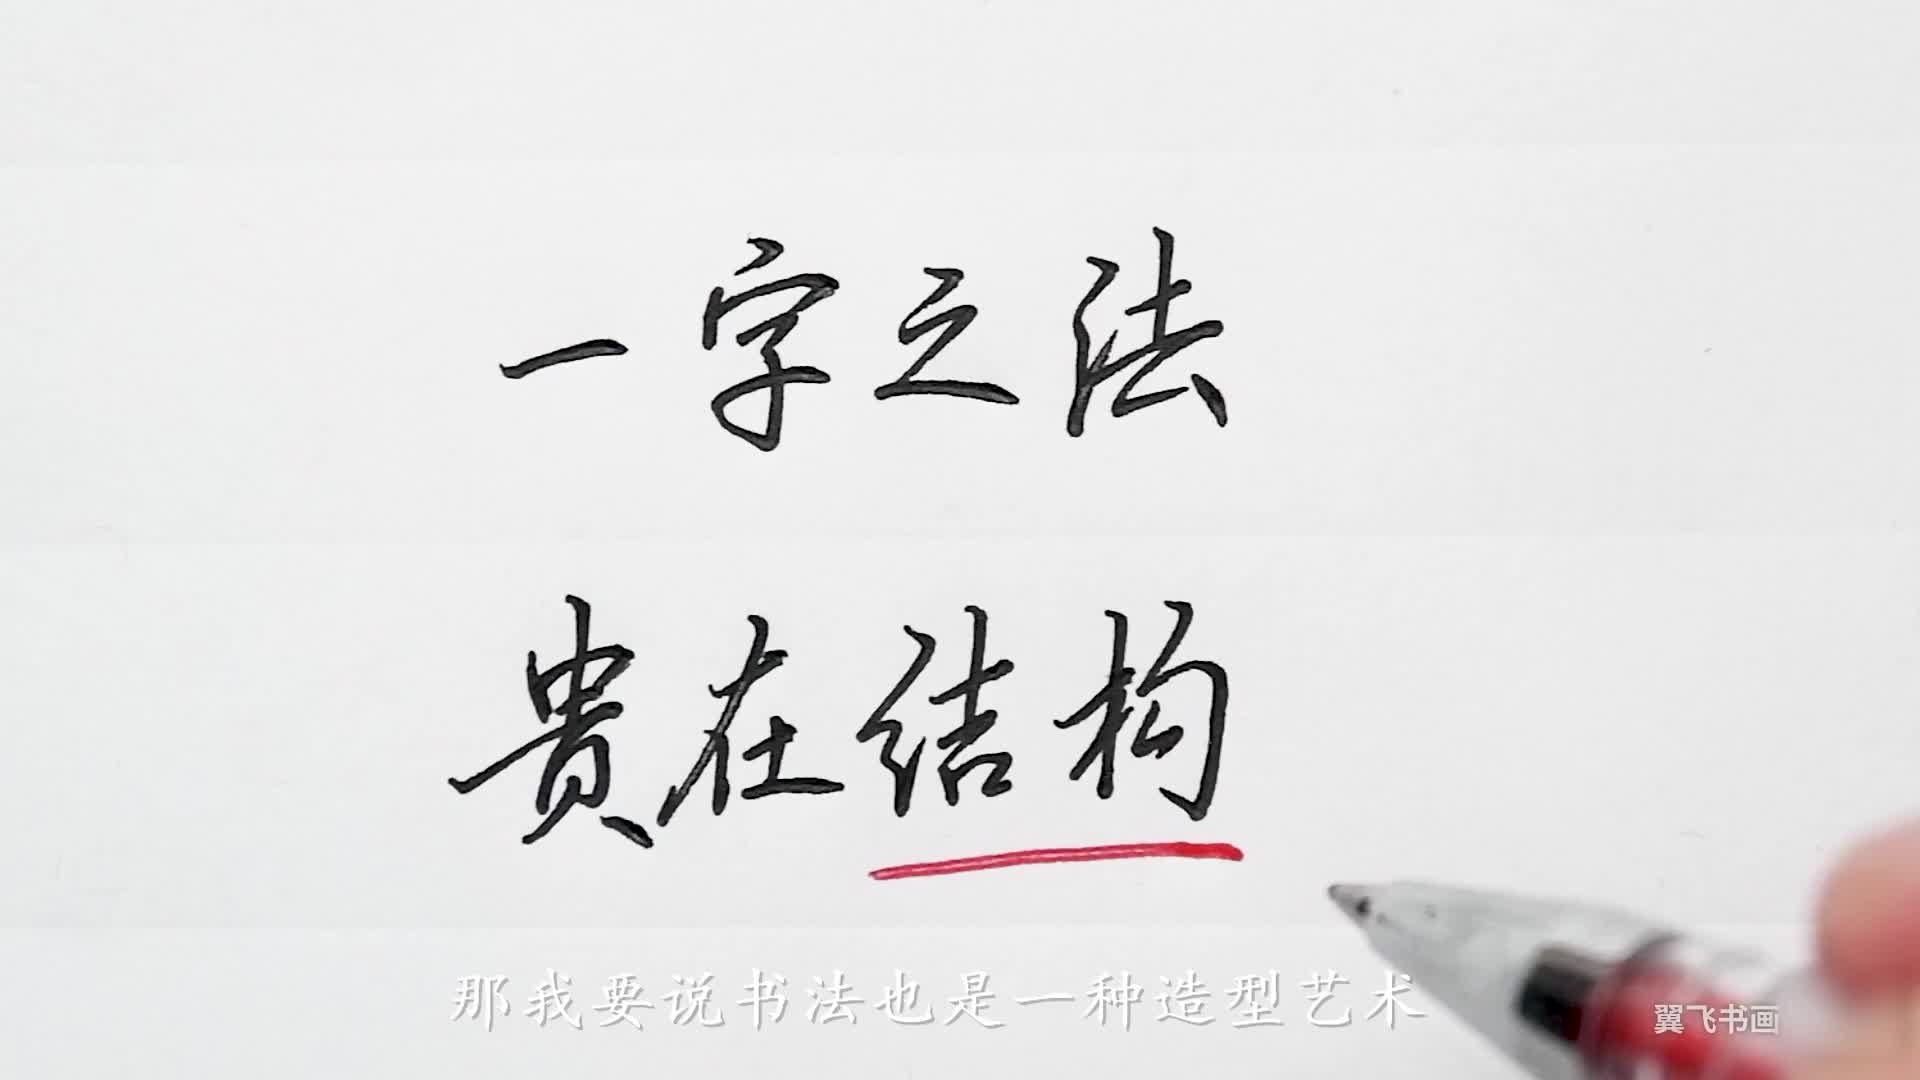 一字之法
贵在结构
那我要说书法也是一种造型艺术
翼飞书画